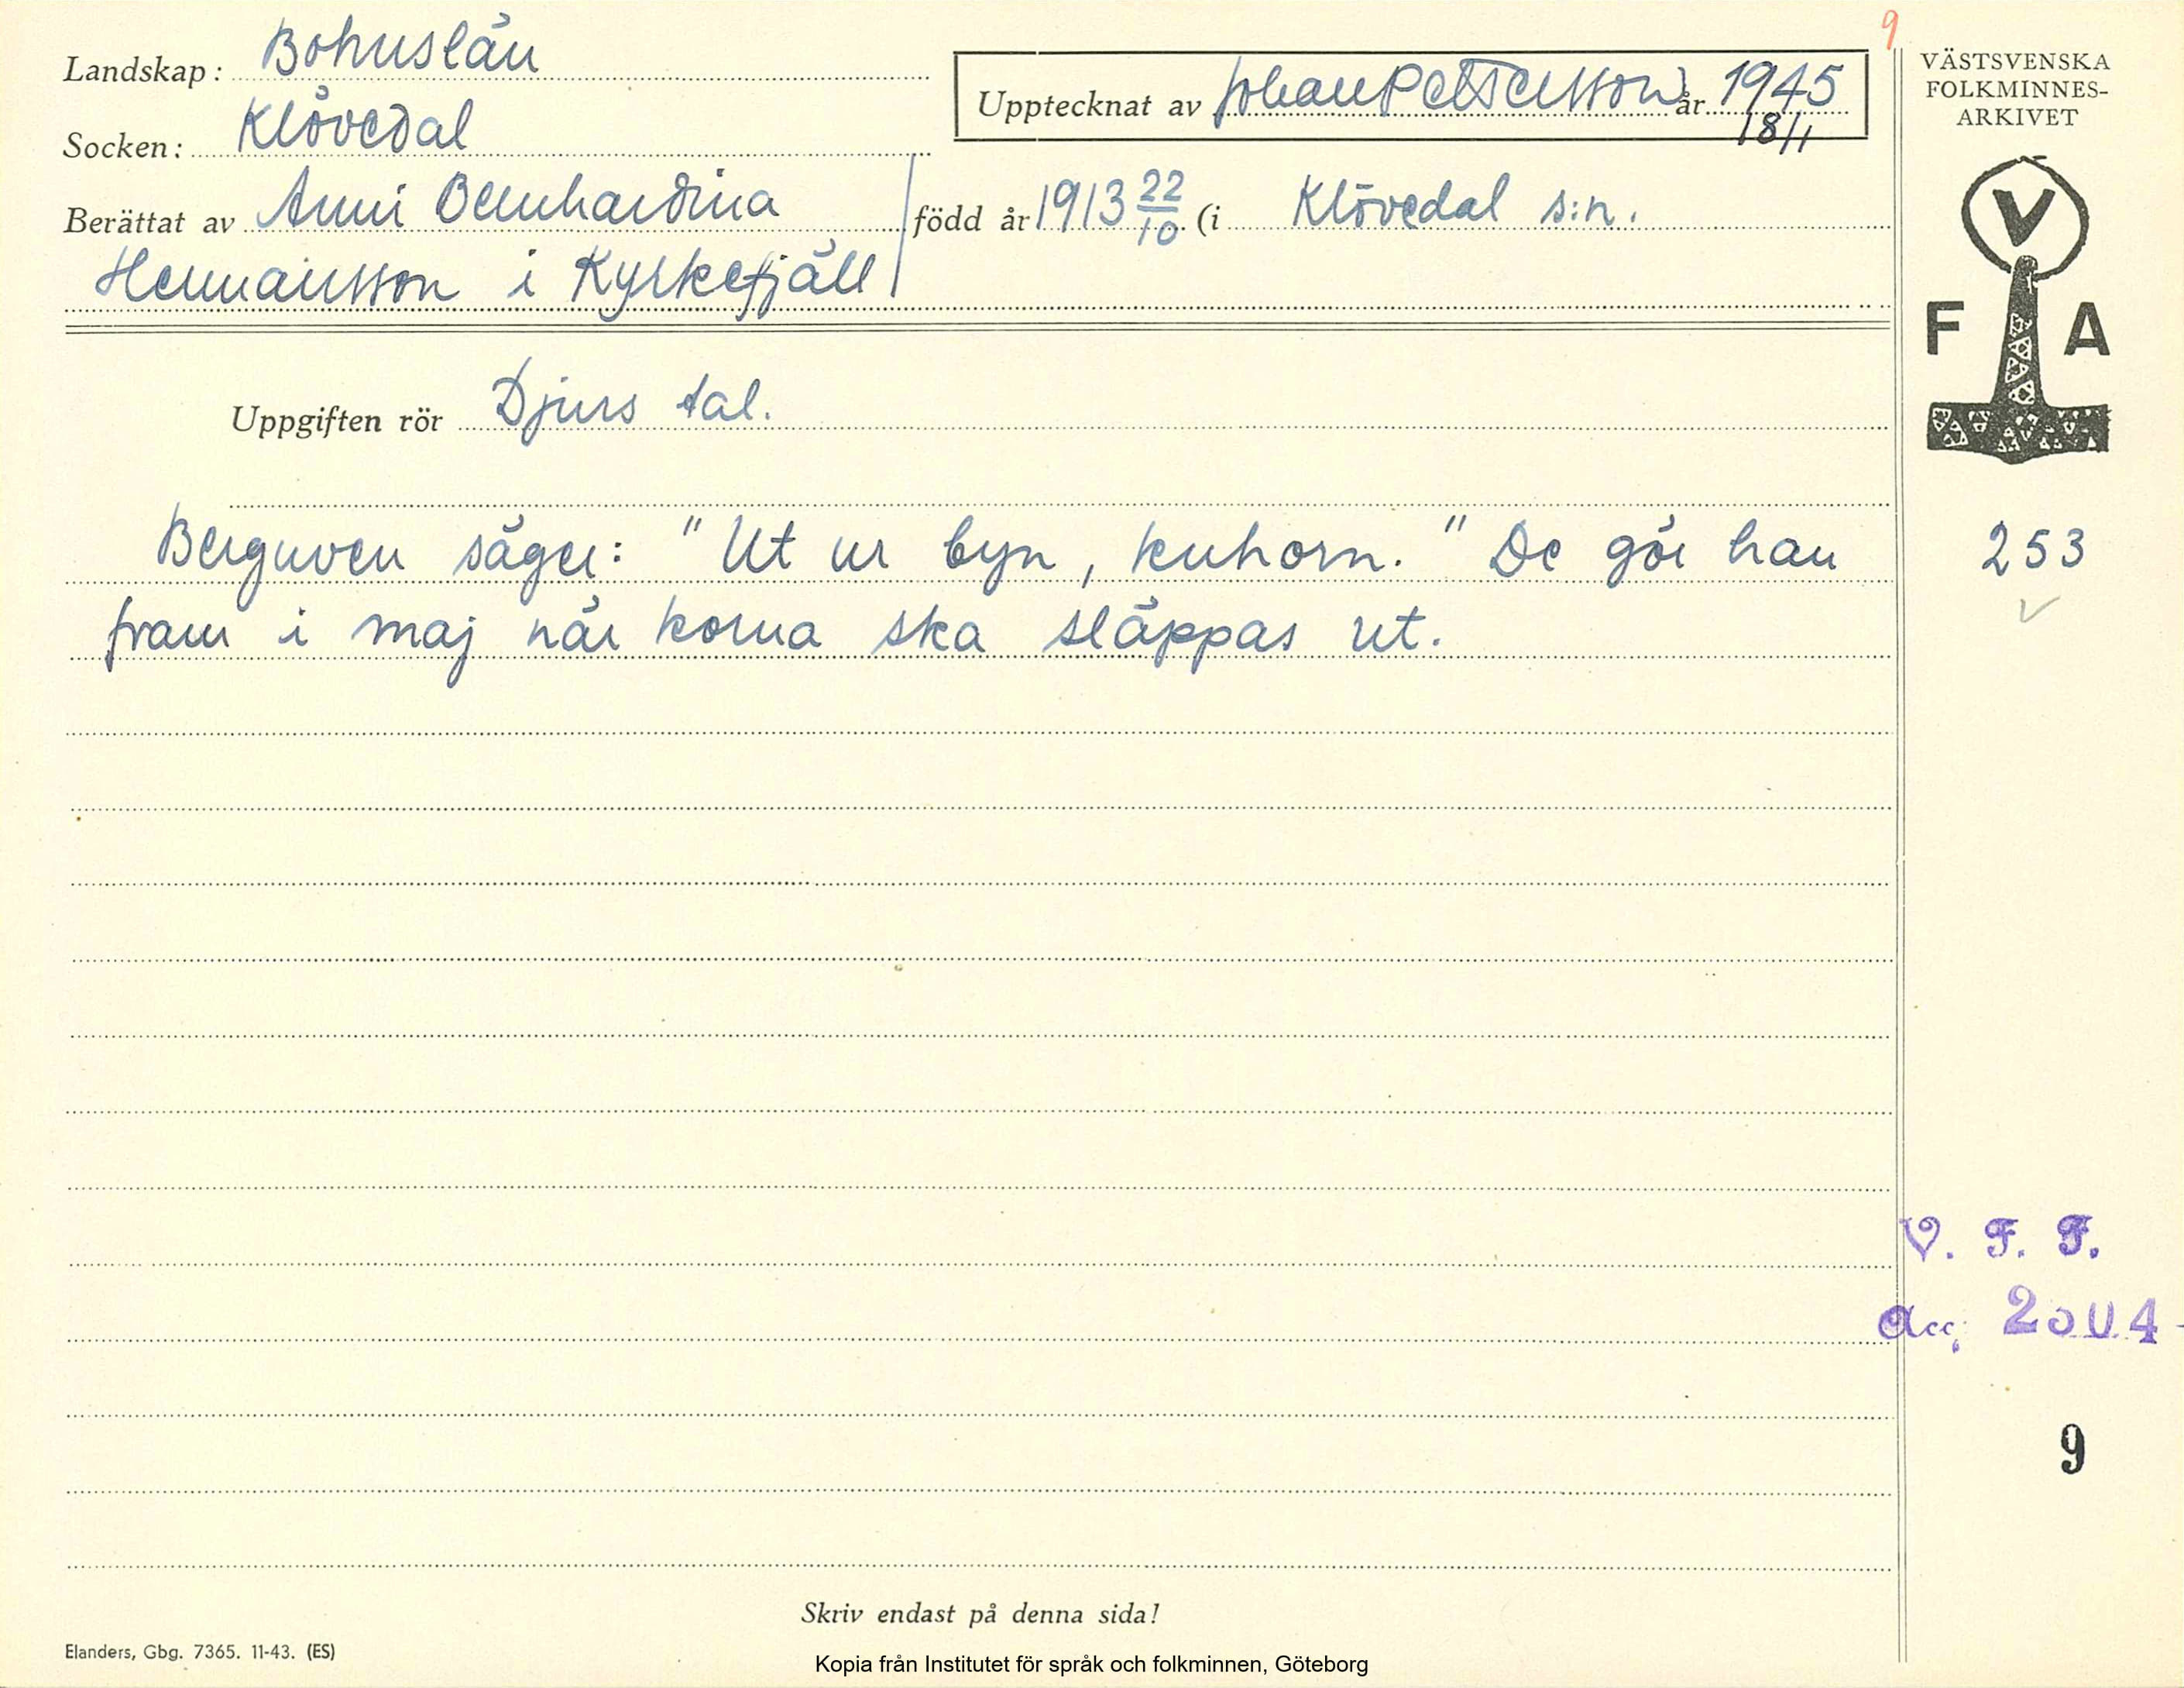 9
Landskap: Bohuslän
Socken: Klövedal
Upptecknat av Johan Pettersson år 1945
18/1
Berättat av Anni Bernhardina
född år 1913 22/10 (i Klövedal s:n.
Hermansson i Kyrkefjäll
VÄSTSVENSKA
FOLKMINNES-
ARKIVET
V
F A
Uppgiften rör Djurs tal.
Berguven säger: "Ut ur byn, kuhorn." De gör han
fram i maj når korna ska släppas ut.
253
V. F. F.
Acc.
9
Skriv endast på denna sida!
Elanders, Gbg. 7365. 11-43. (ES)
Kopia från Institutet för språk och folkminnen, Göteborg